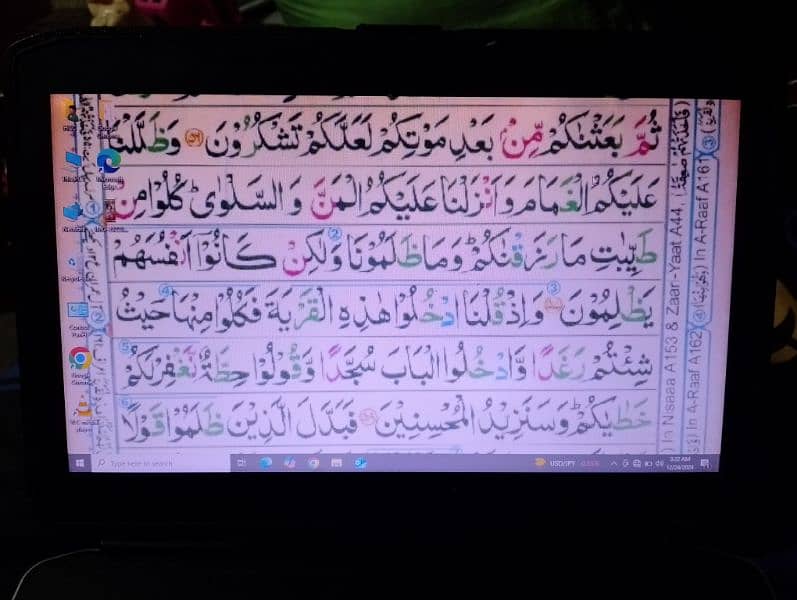 ثُمَّ بَعَثْنٰكُمْ مِّنْۢ بَعْدِ مَوْتِكُمْ لَعَلَّكُمْ تَشْكُرُوْنَ ۝۵۶ وَظَلَّلْنَا
عَلَيْكُمُ الْغَمَامَ وَاَنْزَلْنَا عَلَيْكُمُ الْمَنَّ وَ السَّلْوٰىؕ كُلُوْا مِنْ
طَيِّبٰتِ مَا رَزَقْنٰكُمْؕ وَمَا ظَلَمُوْنَا وَلٰكِنْ كَانُوْۤا اَنْفُسَهُمْ
يَظْلِمُوْنَ وَاِذْ قُلْنَا ادْخُلُوْا هٰذِهِ الْقَرْيَةَ فَكُلُوْا مِنْهَا حَيْثُ
شِئْتُمْ رَغَدًا وَّادْخُلُوا الْبَابَ سُجَّدًا وَّقُوْلُوْا حِطَّةٌ نَّغْفِرْلَكُمْ
خَطٰيٰكُمْؕ وَسَنَزِيْدُ الْمُحْسِنِيْنَ فَبَدَّلَ الَّذِيْنَ ظَلَمُوْا قَوْلًا
) In Nisaaa A153 & Zaar-Yaat A44,
In A-Raaf A162
In A-Raaf A161
Type here to search
USD/JPY
3:37 AM